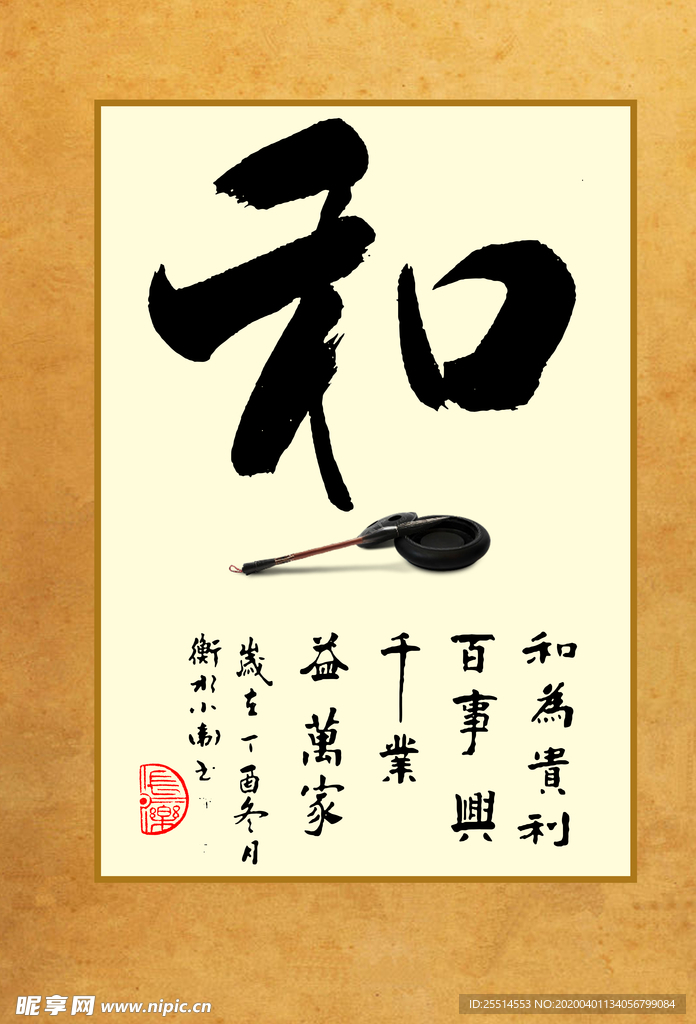 和
和為貴利
百事興
千業
益萬家
歲在丁酉冬月
衡水小衛书
長樂
昵享网 www.nipic.cn
ID:25514553 NO:20200401134056799084